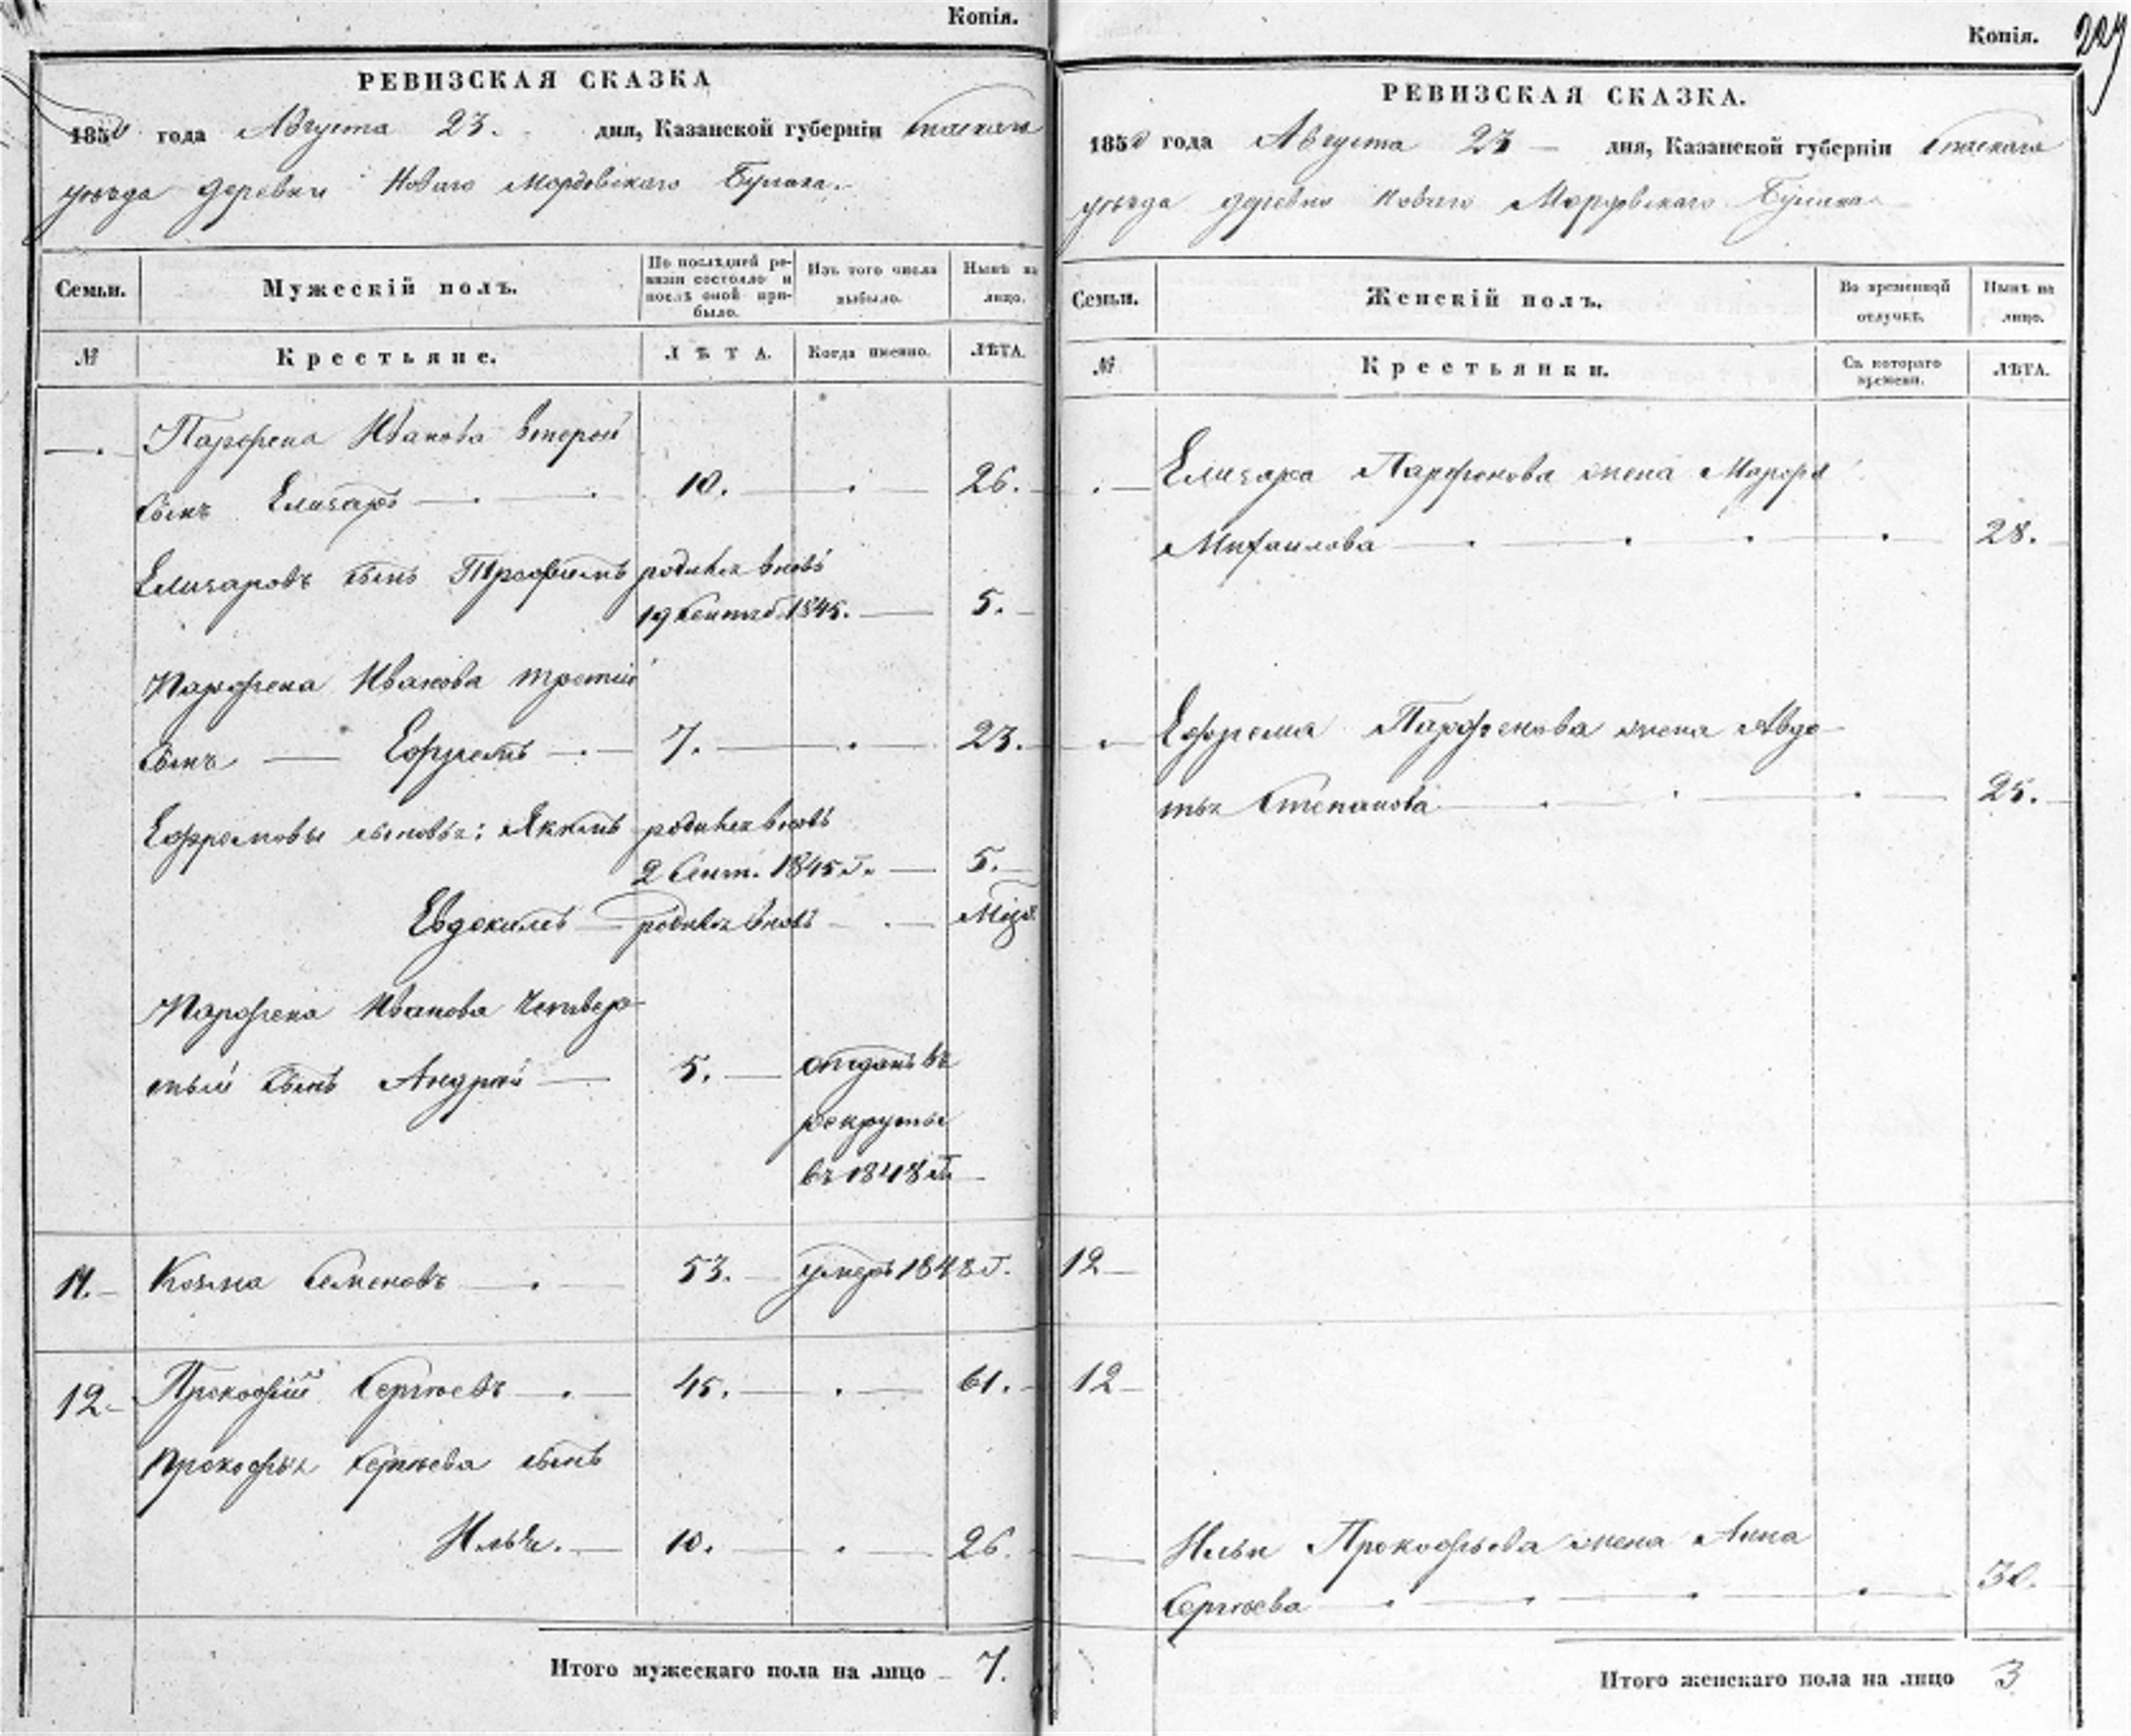 Копія.
РЕВИЗСКАЯ СКАЗКА
1850 года Августа 23. дня, Казанской губерніи Спаскаго
уѣзда деревни Новаго Мордовскаго Бугана.
Семьи.
Мужескій полъ.
По послѣдней ре-
визіи состояло и
послѣ оной при-
было.
Изъ того числа
выбыло.
Нынѣ на
лицо.
№
Крестьяне.
ЛѢТА.
Когда именно.
ЛѢТА.
Парфена Иванова второй
сынъ Елизаръ 10. 26.
Елизаровъ сынъ Трофимъ родился вновь
19 Сентяб. 1845. 5.
Парфена Иванова третій
сынъ Ефремъ 7. 23.
Ефремовы сыновья: Якимъ родился вновь
2 Сент. 1845 г. 5.
Евдокимъ родился вновь
Парфена Иванова четвер-
тый сынъ Андрей 5. отданъ въ
рекруты
въ 1848 г.
11. Козма Семеновъ 53. умеръ 1848 г.
12 Прокофій Сергѣевъ 45. 61.
Прокофья Сергѣева сынъ
Илья. 10. 26.
Итого мужескаго пола на лицо 7.
Копія.
227
РЕВИЗСКАЯ СКАЗКА.
1850 года Августа 23 дня, Казанской губерніи Спаскаго
уѣзда деревни Новаго Мордовскаго Бугана
Семьи.
Женскій полъ.
Во временной
отлучкѣ.
Нынѣ на
лицо.
№
Крестьянки.
Съ котораго
времени.
ЛѢТА.
Елизара Парфенова жена Марфа
Михаилова 28.
Ефрема Парфенова жена Авдо-
тья Степанова 25.
12
12
Ильи Прокофьева жена Анна
Сергѣева 30.
Итого женскаго пола на лицо 3